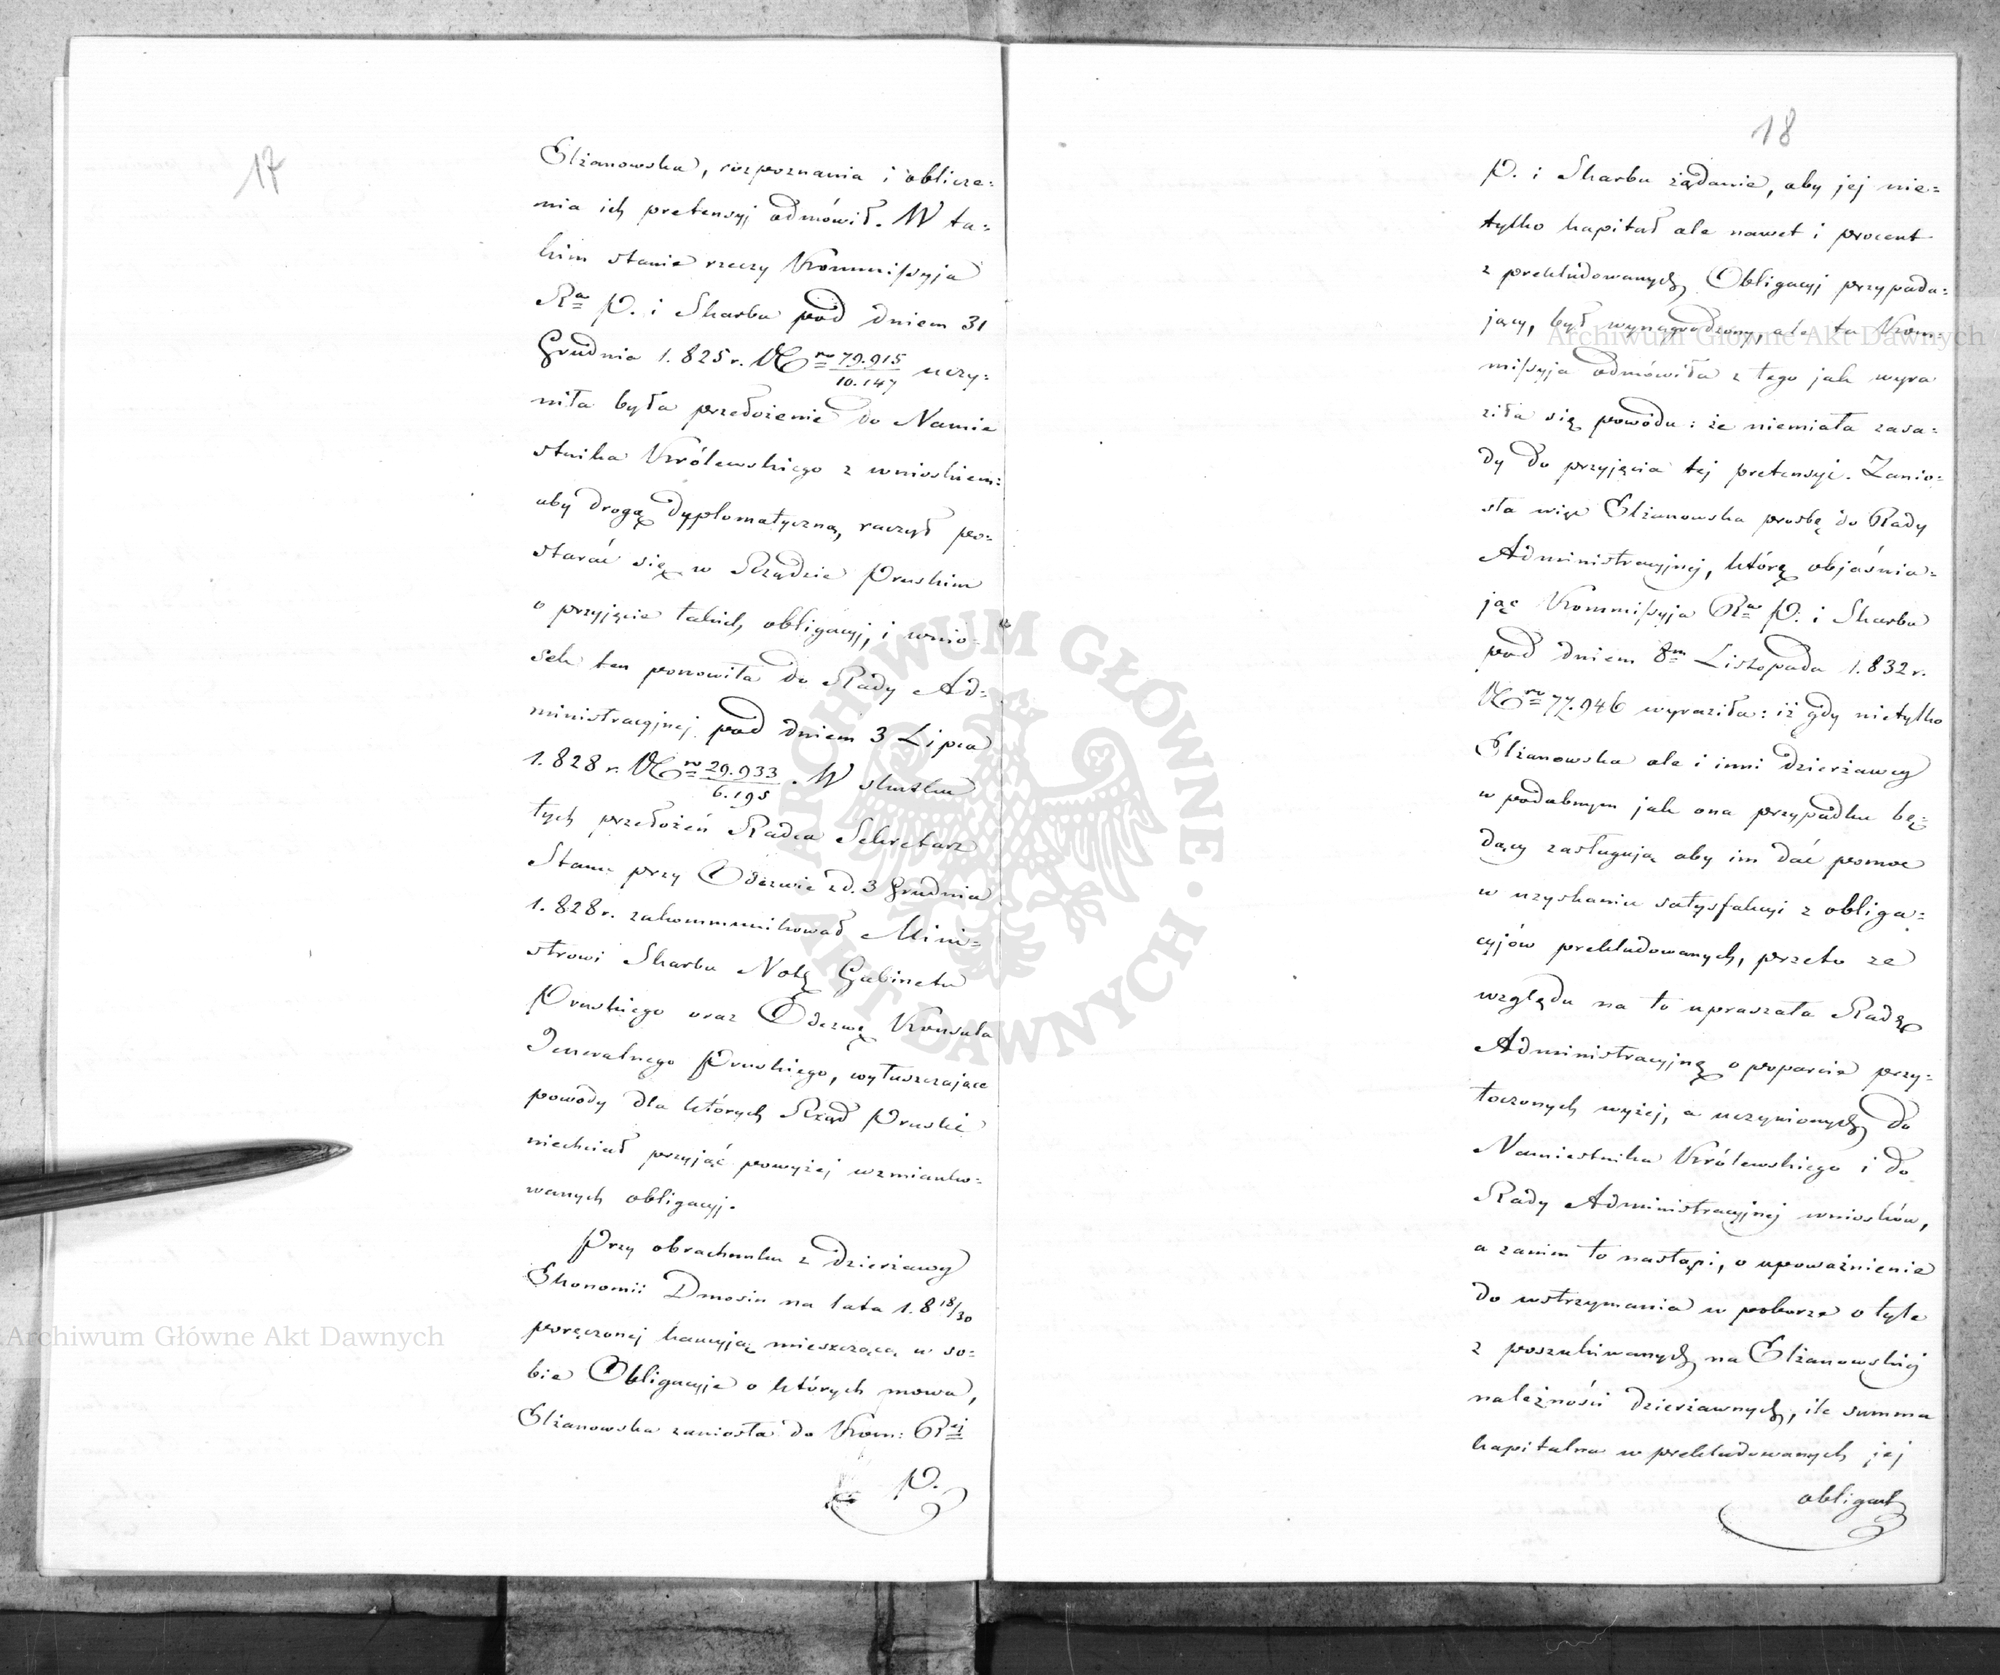 17
Elżanowska, rozpoznania i oblicze=
nia ich pretensyj odmówił. W ta=
kim stanie rzeczy Kommissyja
R<sup>a</sup> P. i Skarbu pod dniem 31
Grudnia 1.825 r. N<sup>ro</sup> 79.915/10.147 uczy=
niła była przełożenie do Namie
stnika Królewskiego z wnioskiem:
aby drogą dyplomatyczną, raczył po=
starać się w Rządzie Pruskim
o przyjęcie takich obligacyj, i wnio=
sek ten ponowiła do Rady Ad=
ministracyjnej pod dniem 3 Lipca
1.828 r. N<sup>ro</sup> 29.933/6.195. W skutku
tych przełożeń Radca Sekretarz
Stanu przy Odezwie z d. 3 Grudnia
1.828 r. zakommunikował Mini=
strowi Skarbu Notę Gabinetu
Pruskiego oraz Odezwę Konsula
Jeneralnego Pruskiego, wyłuszczające
powody dla których Rząd Pruski
niechciał przyjąć powyżej wzmianko=
wanych obligacyj.
Przy obrachunku z dzierżawy
Ekonomii Dmosin na lata 1.8 18/30
poręczonej kaucyją mieszczącą w so=
bie Obligacyje o których mowa,
Elżanowska zaniosła do Kom: R<sup>ej</sup>
P.
18
P. i Skarbu żądanie, aby jej nie=
tylko kapitał ale nawet i procent
z prekludowanych Obligacyj przypada=
jący, był wynagrodzony, ale ta Kom=
missyja odmówiła z tego jak wyra
ziła się powodu: że niemiała zasa=
dy do przyjęcia tej pretensyi. Zanio=
sła więc Elżanowska prośbę do Rady
Administracyjnej, którą objaśnia=
jąc Kommissyja R<sup>a</sup> P. i Skarbu
pod dniem 8<sup>m</sup> Listopada 1.832 r.
N<sup>ro</sup> 77.946 wyraziła: iż gdy nietylko
Elżanowska ale i inni dzierżawcy
w podobnym jak ona przypadku bę=
dący zasługują aby im dać pomoc
w uzyskaniu satysfakcyi z obliga=
cyjów prekludowanych, przeto ze
względu na to upraszała Radę
Administracyjną o poparcie przy=
toczonych wyżej, a uczynionych do
Namiestnika Królewskiego i do
Rady Administracyjnej wniosków,
a zanim to nastąpi, o upoważnienie
do wstrzymania w poborze o tyle
z poszukiwanych na Elżanowskiej
należności dzierżawnych, ile summa
kapitalna w prekludowanych jej
obligach
Archiwum Główne Akt Dawnych
Archiwum Główne Akt Dawnych
ARCHIWUM GŁÓWNE · AKT DAWNYCH ·